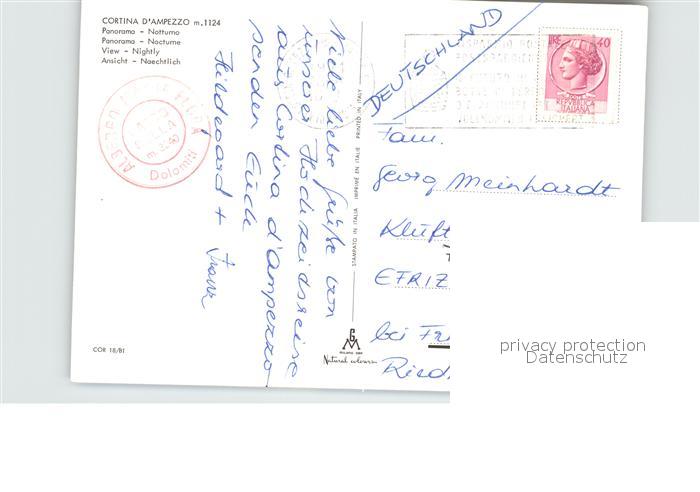 CORTINA D'AMPEZZO m. 1124
Panorama - Notturno
Panorama - Nocturne
View - Nightly
Ansicht - Naechtlich
Dolomiti
COR 18/BI
Viele liebe Grüße von
unserer Hochzeitsreise
aus Cortina d'ampezzo
senden Euch
Hildegard + Franz
STAMPATO IN ITALIA IMPRIMÉ EN ITALIE PRINTED IN ITALY
Natural colours
DEUTSCHLAND
LIRE 40
REPVBBLICA
ITALIANA
Fam.
Georg Meinhardt
Klüft
ETRIZ
bei Fr
Ried
privacy protection
Datenschutz